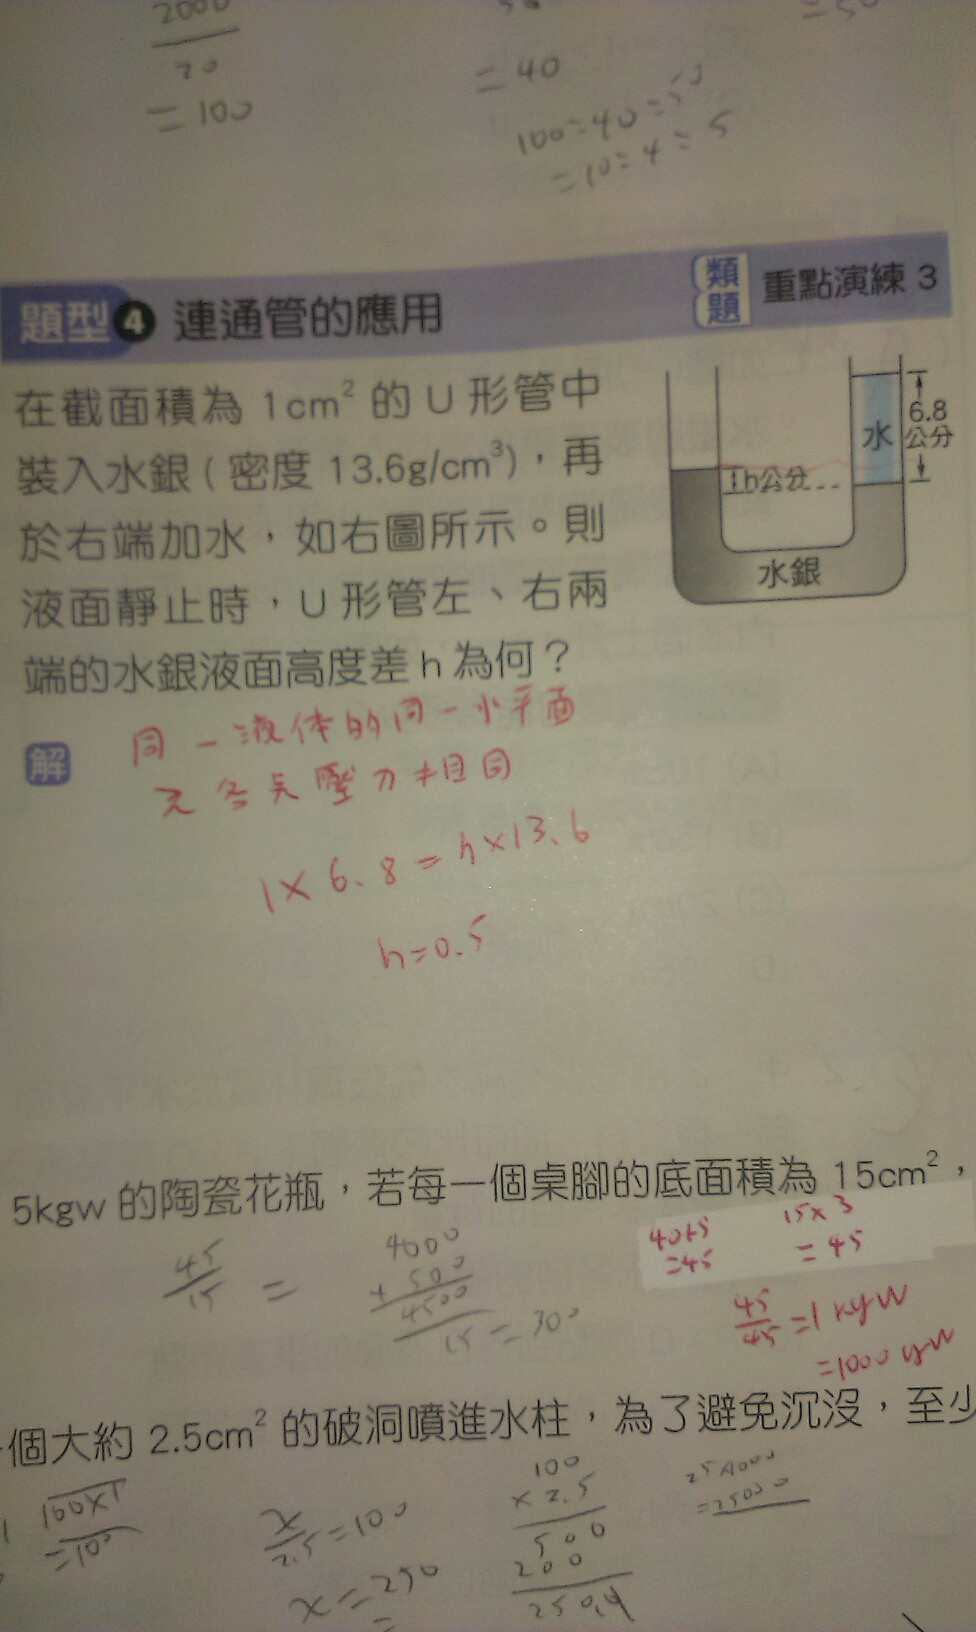 2000
20
= 100
= 40
100=40=50
=10=4=5
題型4 連通管的應用
類題 重點演練 3
在截面積為 1cm² 的 U 形管中
裝入水銀(密度 13.6g/cm³),再
於右端加水,如右圖所示。則
液面靜止時,U 形管左、右兩
端的水銀液面高度差 h 為何?
水
6.8
公分
h公分
水銀
解
同一液体的同一水平面
各點壓力相同
1×6.8=h×13.6
h=0.5
5kgw 的陶瓷花瓶,若每一個桌腳的底面積為 15cm²,
45
15
=
4000
+ 500
4500
15 = 300
40+5
=45
15×3
=45
45
45
=1 kgw
=1000 gw
個大約 2.5cm² 的破洞噴進水柱,為了避免沉沒,至少
100×1
=100
x
2.5
=100
x=250
100
× 2.5
500
200
250.0